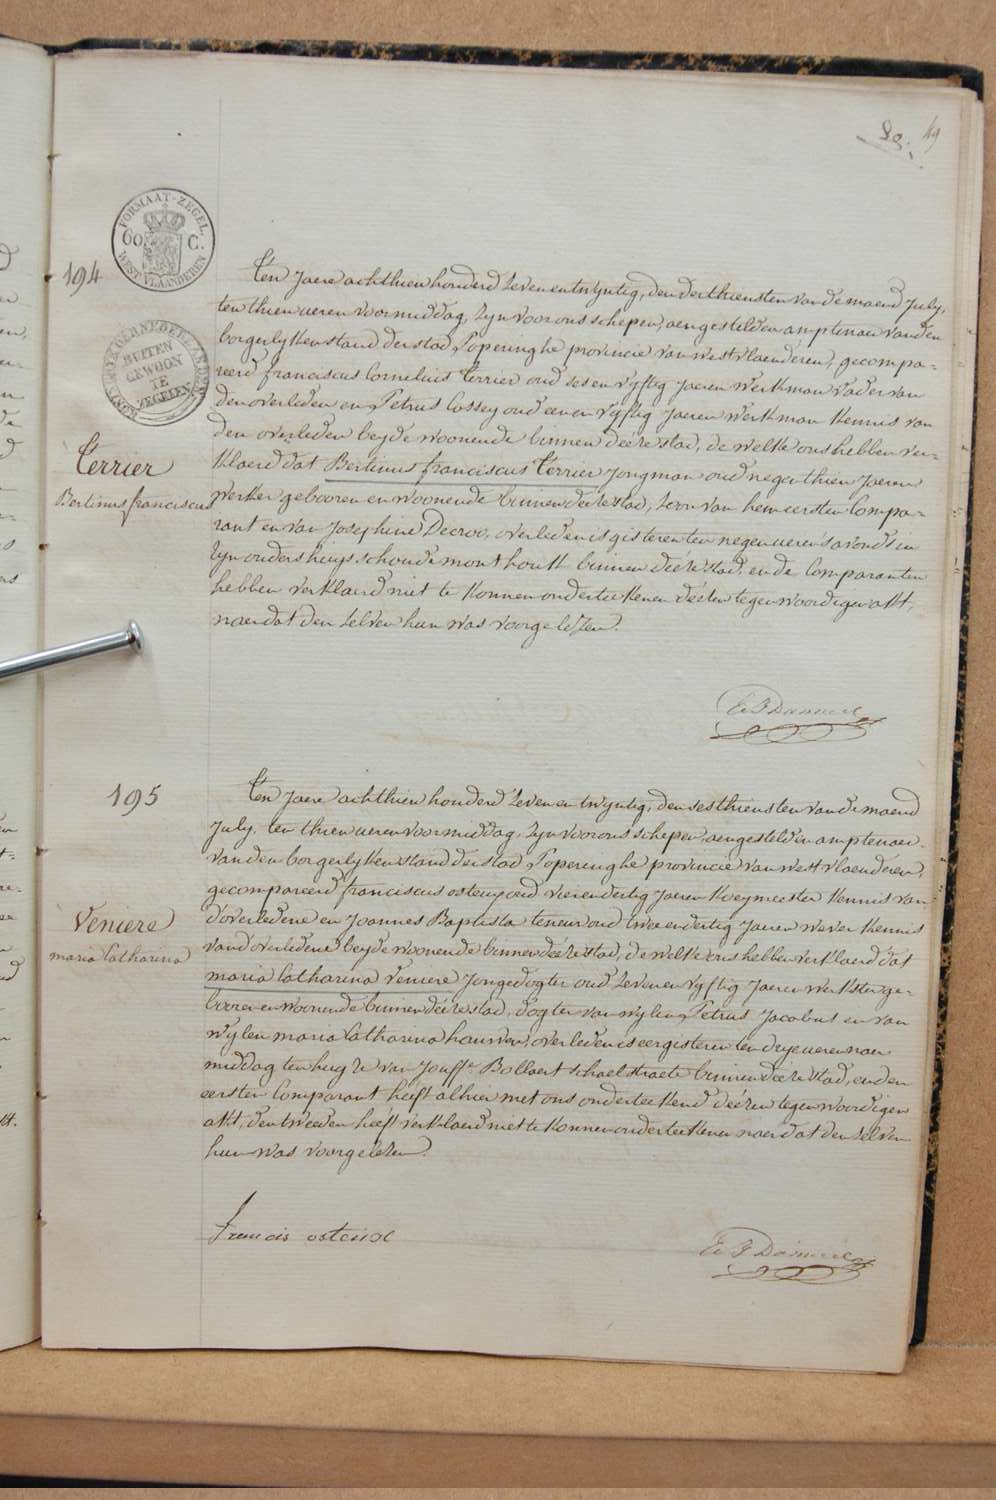 88. 49
FORMAAT-ZEGEL.
60 C.
WEST VLAANDEREN
194
BUITEN
GEWOON
TE
ZEGELEN
Terrier
Bertinus franciscus
Ten Jaere achthien honderd zeven en twyntig, den derthiensten van de maend July,
ten thien ueren voormiddag, zyn voor ons schepen, aengestelden amptenaer van den
borgerlyken stand der stad Poperinghe provincie van westvlaenderen, gecompa-
reerd franciscus Cornelius Terrier oud ses en vyftig Jaeren werkman vader van
den overleden en Petrus Cossey oud een en vyftig Jaeren werkman kennis van
den overleden beyde woonende binnen deéze stad, de welke ons hebben ver-
klaerd dat Bertinus franciscus Terrier Jongman oud negenthien Jaeren
werker gebooren en woonende binnen deéze stad, zoon van hem eersten Compa-
rant en van Josephine Decroo, overleden is gisteren ten negen ueren s'avonds in
zyn ouders huys schoudemonthoutt binnen deéze stad, en de Comparanten
hebben verklaerd niet te konnen onderteekenen deézen tegenwoordigen akt,
naer dat den zelven hun was voorgelézen.
195
Veniere
maria Catharina
Ten Jaere achthien honderd zeven en twyntig, den sesthiensten van de maend
July, ten thien ueren voormiddag, zyn voor ons schepen, aengestelden amptenaer
van den borgerlyken stand der stad Poperinghe provincie van westvlaenderen,
gecompareerd franciscus ostengoed vier en dertig Jaeren kennis van
d'overledene en Joannes Baptista teneur oud twee en dertig Jaeren wever kennis
van d'overledene beyde woonende binnen deéze stad, de welke ons hebben verklaerd dat
maria Catharina Veniere Jongedogter oud zeven en vyftig Jaeren werkster ge-
booren en woonende binnen deéze stad, dogter van wylen Petrus Jacobus en van
wylen maria Catharina hauwen, overleden is eergisteren ten drye ueren naer
middag ten huyze van Jouffe. Bollaert schaelstraete binnen deéze stad, en den
eersten Comparant heeft alhier met ons onderteekend deézen tegenwoordigen
akt, den tweeden heeft verklaerd niet te konnen onderteekenen naer dat den zelven
hun was voorgelézen.